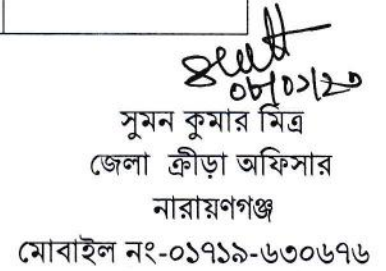 ০৮/০১/২৩
সুমন কুমার মিত্র
জেলা ক্রীড়া অফিসার
নারায়ণগঞ্জ
মোবাইল নং-০১৭১৯-৬৩০৬৭৬